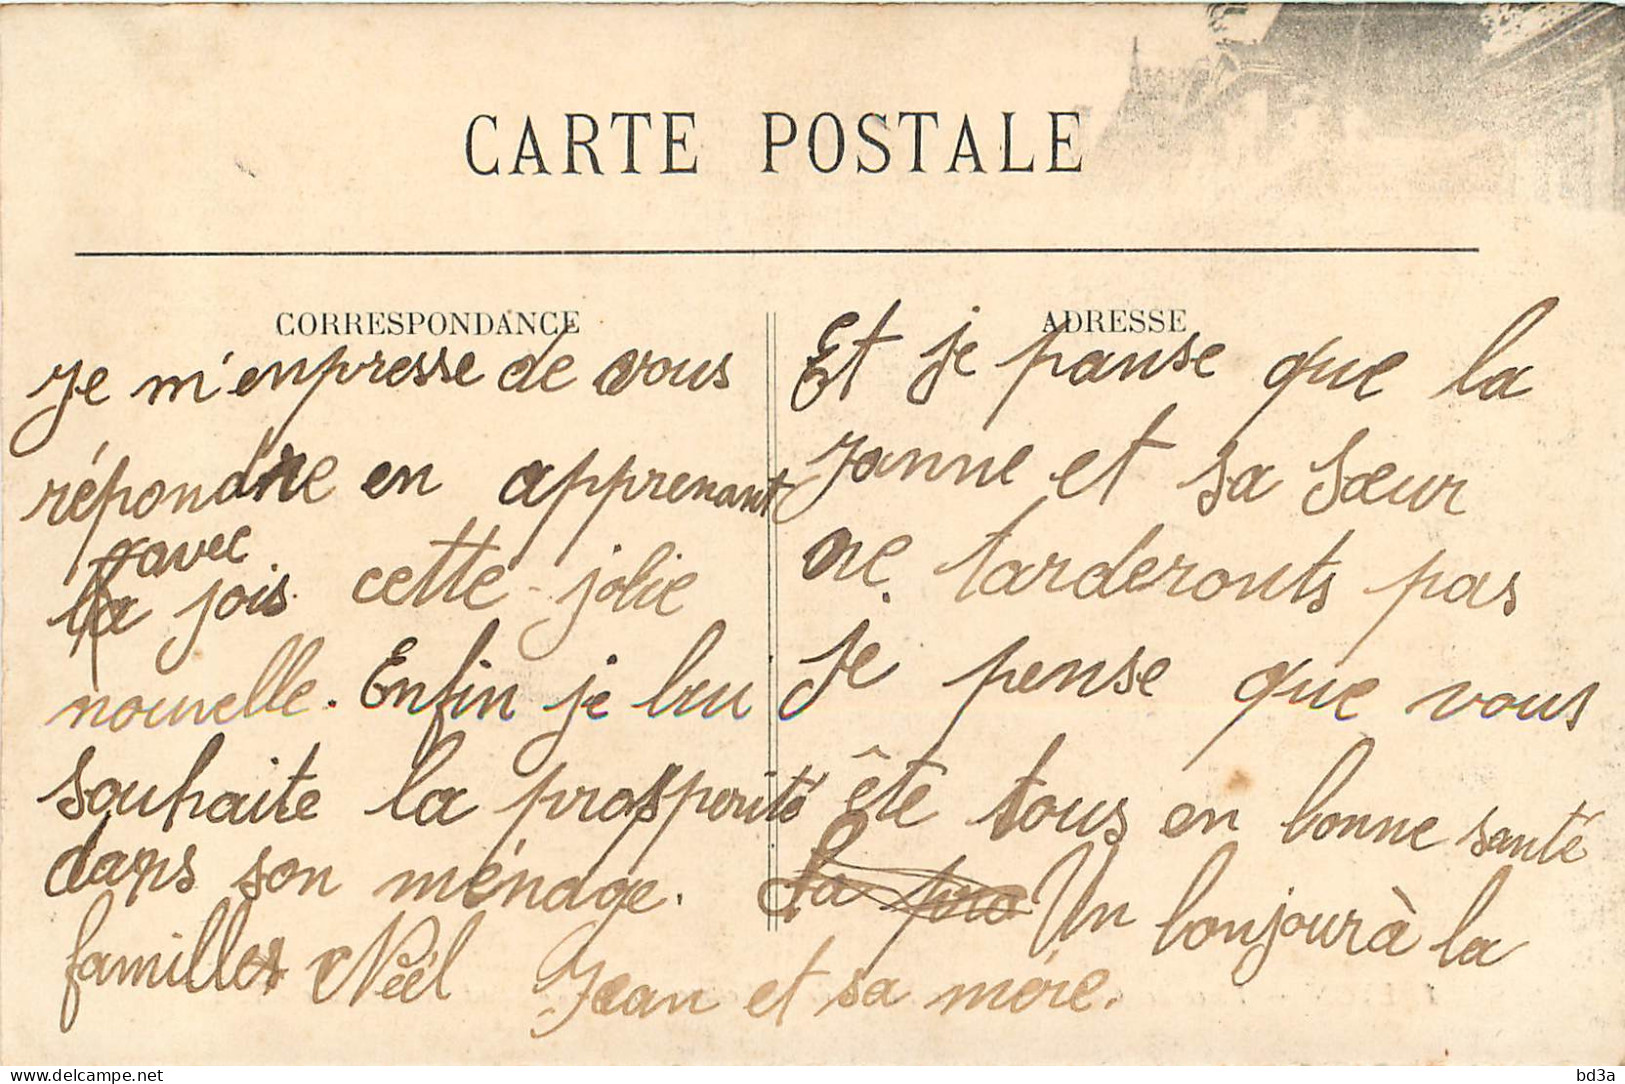 CARTE POSTALE
CORRESPONDANCE
Je m'enpresse de vous
répondre en apprenant
avec
la jois cette jolie
nouvelle. Enfin je leu
souhaite la prospérité
dans son ménage.
ADRESSE
Et je panse que la
Janne et sa sœur
ne tarderonts pas
je pense que vous
ête tous en bonne santé
La pro Un bonjour à la
familles Noël Jean et sa mère.
bd3a